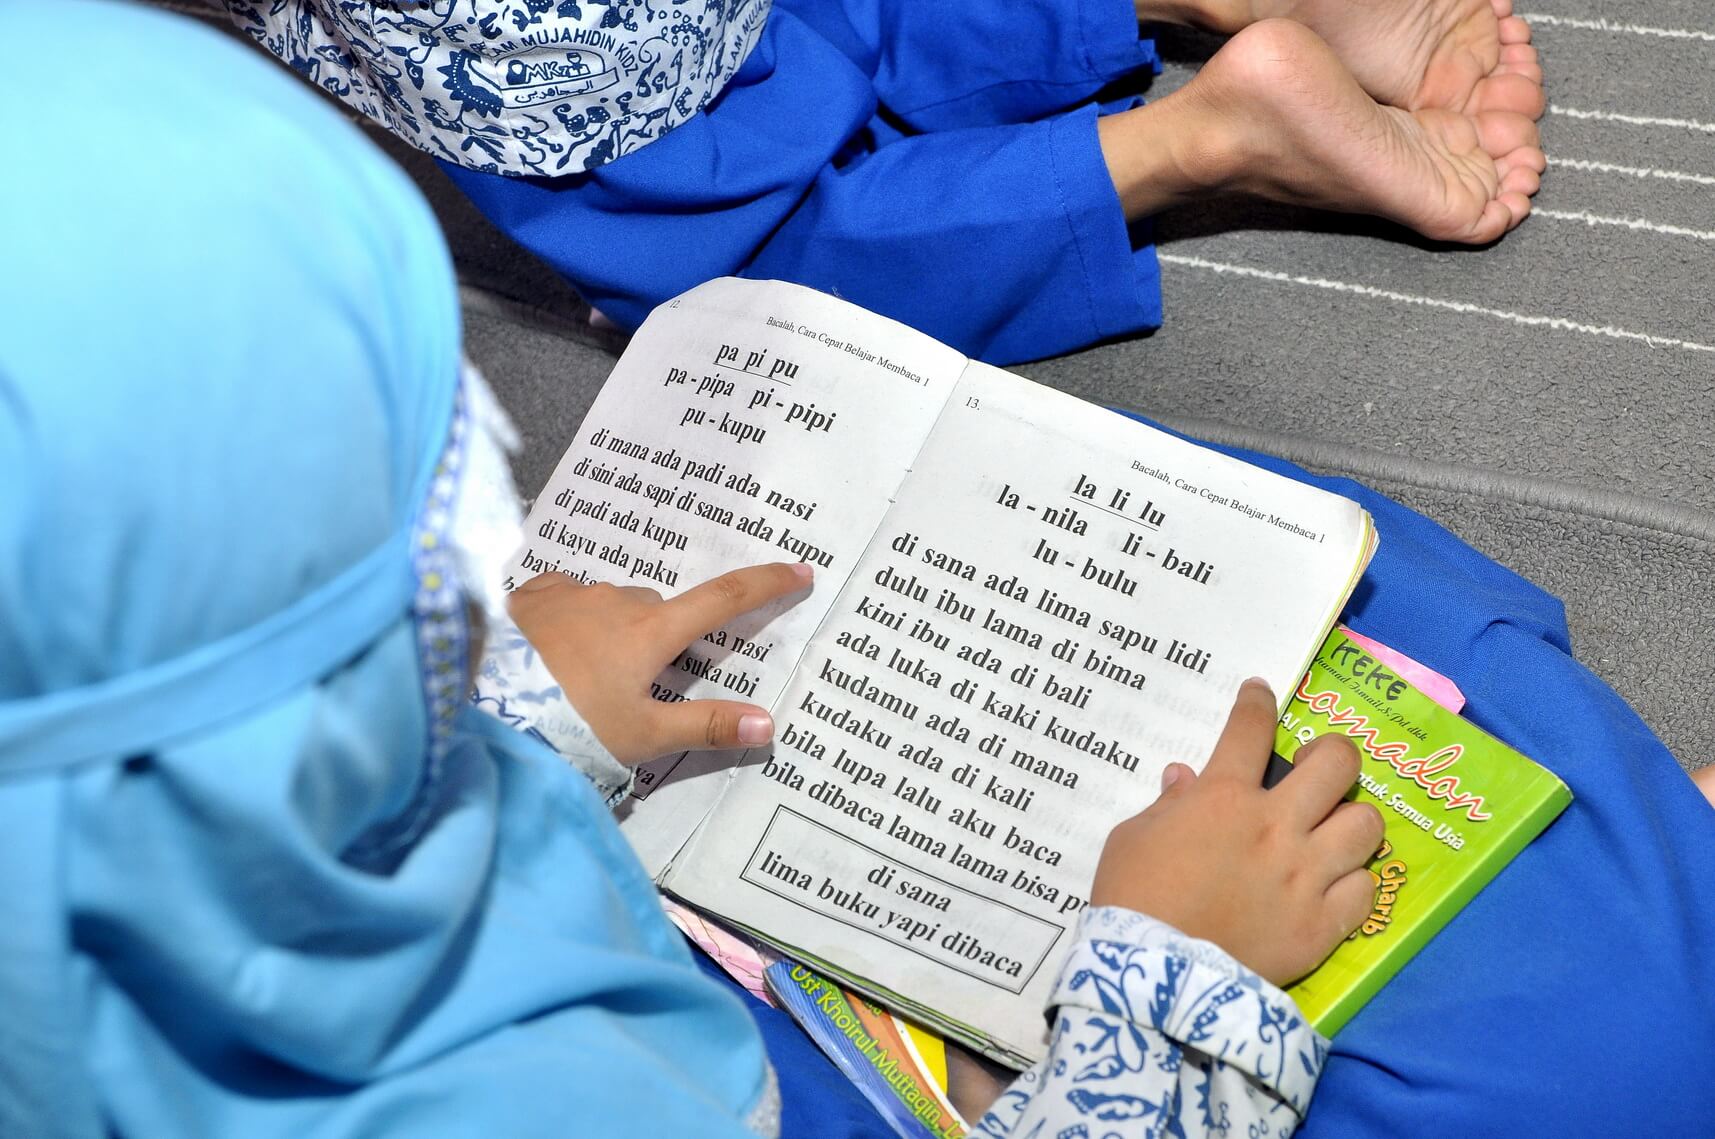 LAM MUJAHIDIN KIDZ
SLAM MUJA
MK
المجاهدين
12.
Bacalah, Cara Cepat Belajar Membaca 1
pa pi pu
pa - pipa pi - pipi
pu - kupu
di mana ada padi ada nasi
di sini ada sapi di sana ada kupu
di padi ada kupu
di kayu ada paku
bayi suka
ka nasi
suka ubi
ya
13.
Bacalah, Cara Cepat Belajar Membaca 1
la li lu
la - nila li - bali
lu - bulu
di sana ada lima sapu lidi
dulu ibu lama di bima
kini ibu ada di bali
ada luka di kaki kudaku
kudamu ada di mana
kudaku ada di kali
bila lupa lalu aku baca
bila dibaca lama lama bisa pu
di sana
lima buku yapi dibaca
KEKE
Ismail,S.Pd dkk
Al Q
ntuk Semua Usia
Gharib
Ust Khoirul Muttaqin, L